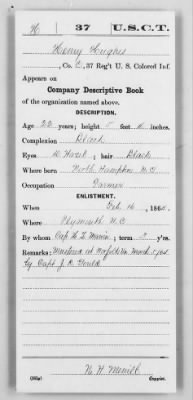 H | 37 | U.S.C.T.
Henry Hughes
, Co. C, 37 Reg't U. S. Colored Inf.
Appears on
Company Descriptive Book
of the organization named above.
DESCRIPTION.
Age 22 years; height 5 feet inches.
Complexion Black
Eyes Hazel; hair Black
Where born North Hampton N.C.
Occupation Farmer
ENLISTMENT.
When Feb 16, 186
Where Plymouth N.C.
By whom Capt H. ; term 3 y'rs.
Remarks: Mustered at Norfolk Va
by Capt J. R. Gould
N. H. Merrill
Copyist.